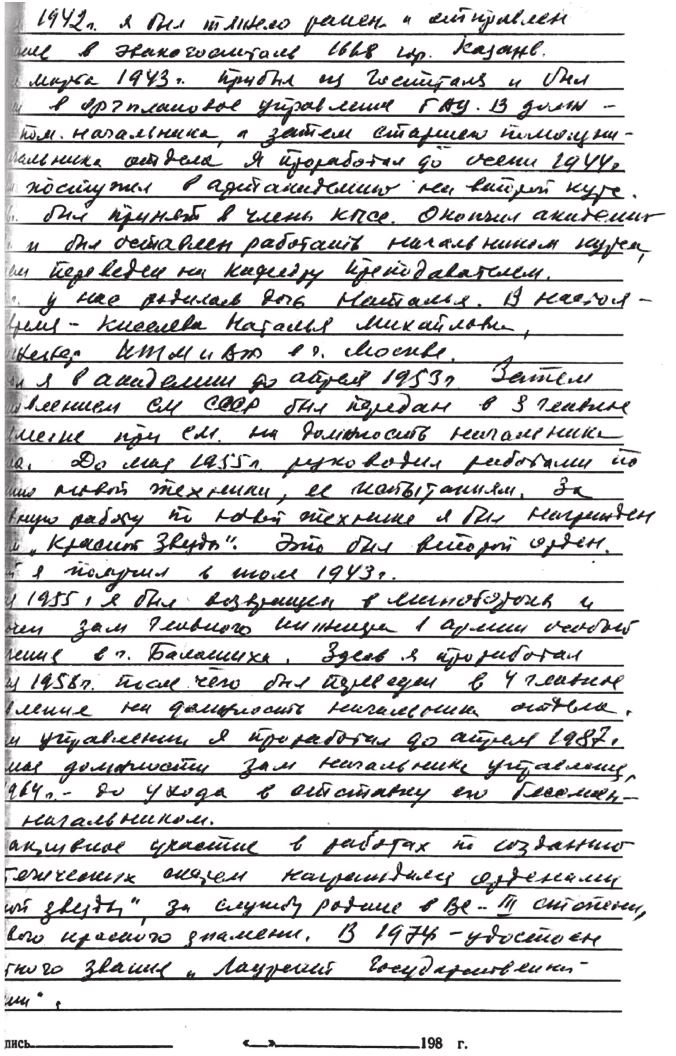 1942г. я был тяжело ранен и отправлен
в эвакогоспиталь 1668 гор. Казань.
марта 1943г. прибыл из госпиталя и был
в оргплановое управление ГАУ. В долж-
пом. начальника, а затем старшего помощни-
альника отдела я проработал до осени 1944г
поступил в артакадемию на второй курс.
был принят в члены КПСС. Окончил академию
и был оставлен работать начальником курса,
ем переведен на кафедру преподавателем.
у нас родилась дочь Наталья. В настоя-
время - Киселева Наталья Михайловна,
ИТМ и ВТ в г. Москве.
я в академии до апреля 1953г Затем
овлением СМ СССР был передан в 3 главное
при СМ. на должность начальника
ла. До мая 1955г. руководил работами по
новой техники, ее испытаниям. За
вную работу по новой технике я был награжден
м „Красной Звезды". Это был второй орден.
й я получил в том 1943г.
1955г я был возвращен в минобороны и
чен зам главного инженера 1 армии особого
чения в г. Балашиха. Здесь я проработал
1958г. после чего был переведен в 4 главное
вление на должность начальника отдела.
м управлении я проработал до апреля 1987г
должности зам начальника управления,
964г. - до ухода в отставку его бессмен-
начальником.
активное участие в работах по созданию
систем награждался орденами
ой звезды", за службу родине в ВС - III степени,
вого красного знамени. В 1974 - удостоен
тного звания „Лауреат Государственной
ии".
пись «__» 198 г.